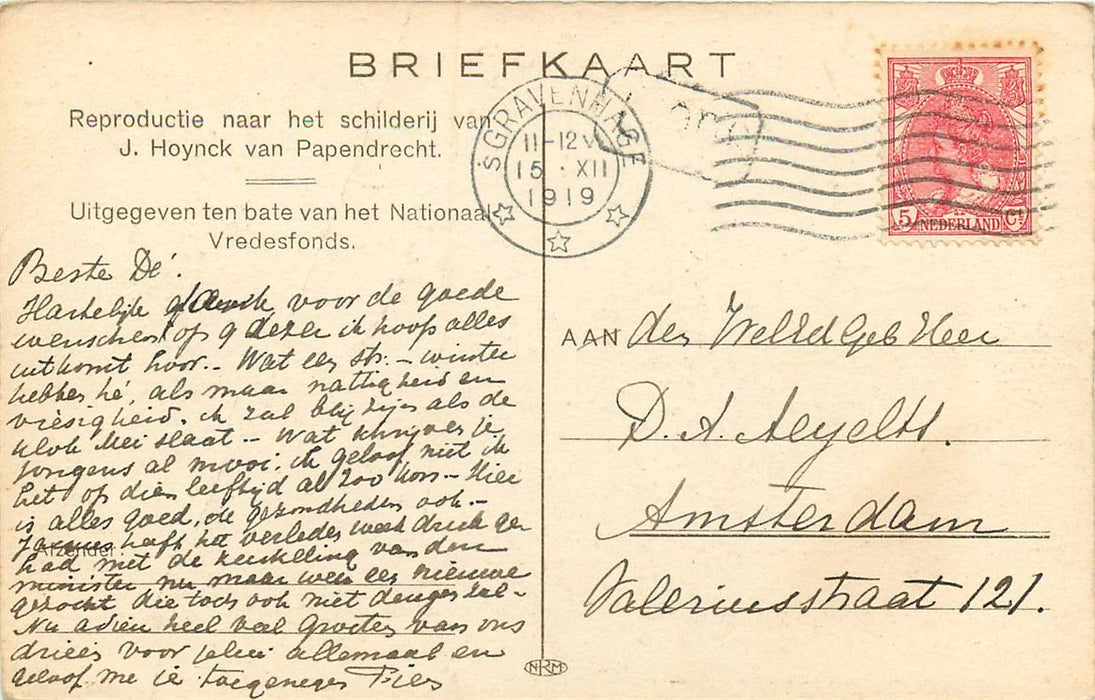 BRIEFKAART
Reproductie naar het schilderij van
J. Hoynck van Papendrecht.
Uitgegeven ten bate van het Nationaal
Vredesfonds.
'SGRAVENHAGE
11-12 V
15 · XII
1919
5 NEDERLAND Ct
Beste Dé.
Hartelijk dank voor de goede
wenschen ik hoop alles
uitkomt hoor. - Wat een - winter
hebben hé, als maar nattigheid en
viesigheid. ik zal blij zijn als de
klok Mei slaat - Wat schrijven je
jongens al mooi. ik geloof niet ik
het op dien leeftijd al zoo kon - Hier
is alles goed, de gezondheden ook. -
heeft het verleden week druk ge
Afzender
had met de van den
minister nu maar weer een nieuwe
gezocht die toch ook niet deugen zal -
Nu adieu heel veel groeten van ons
drieën voor jelui allemaal en
geloof me je toegenegen
AAN den WelEdGeb Heer
D. A.
Amsterdam
Valeriusstraat 121.
NRM